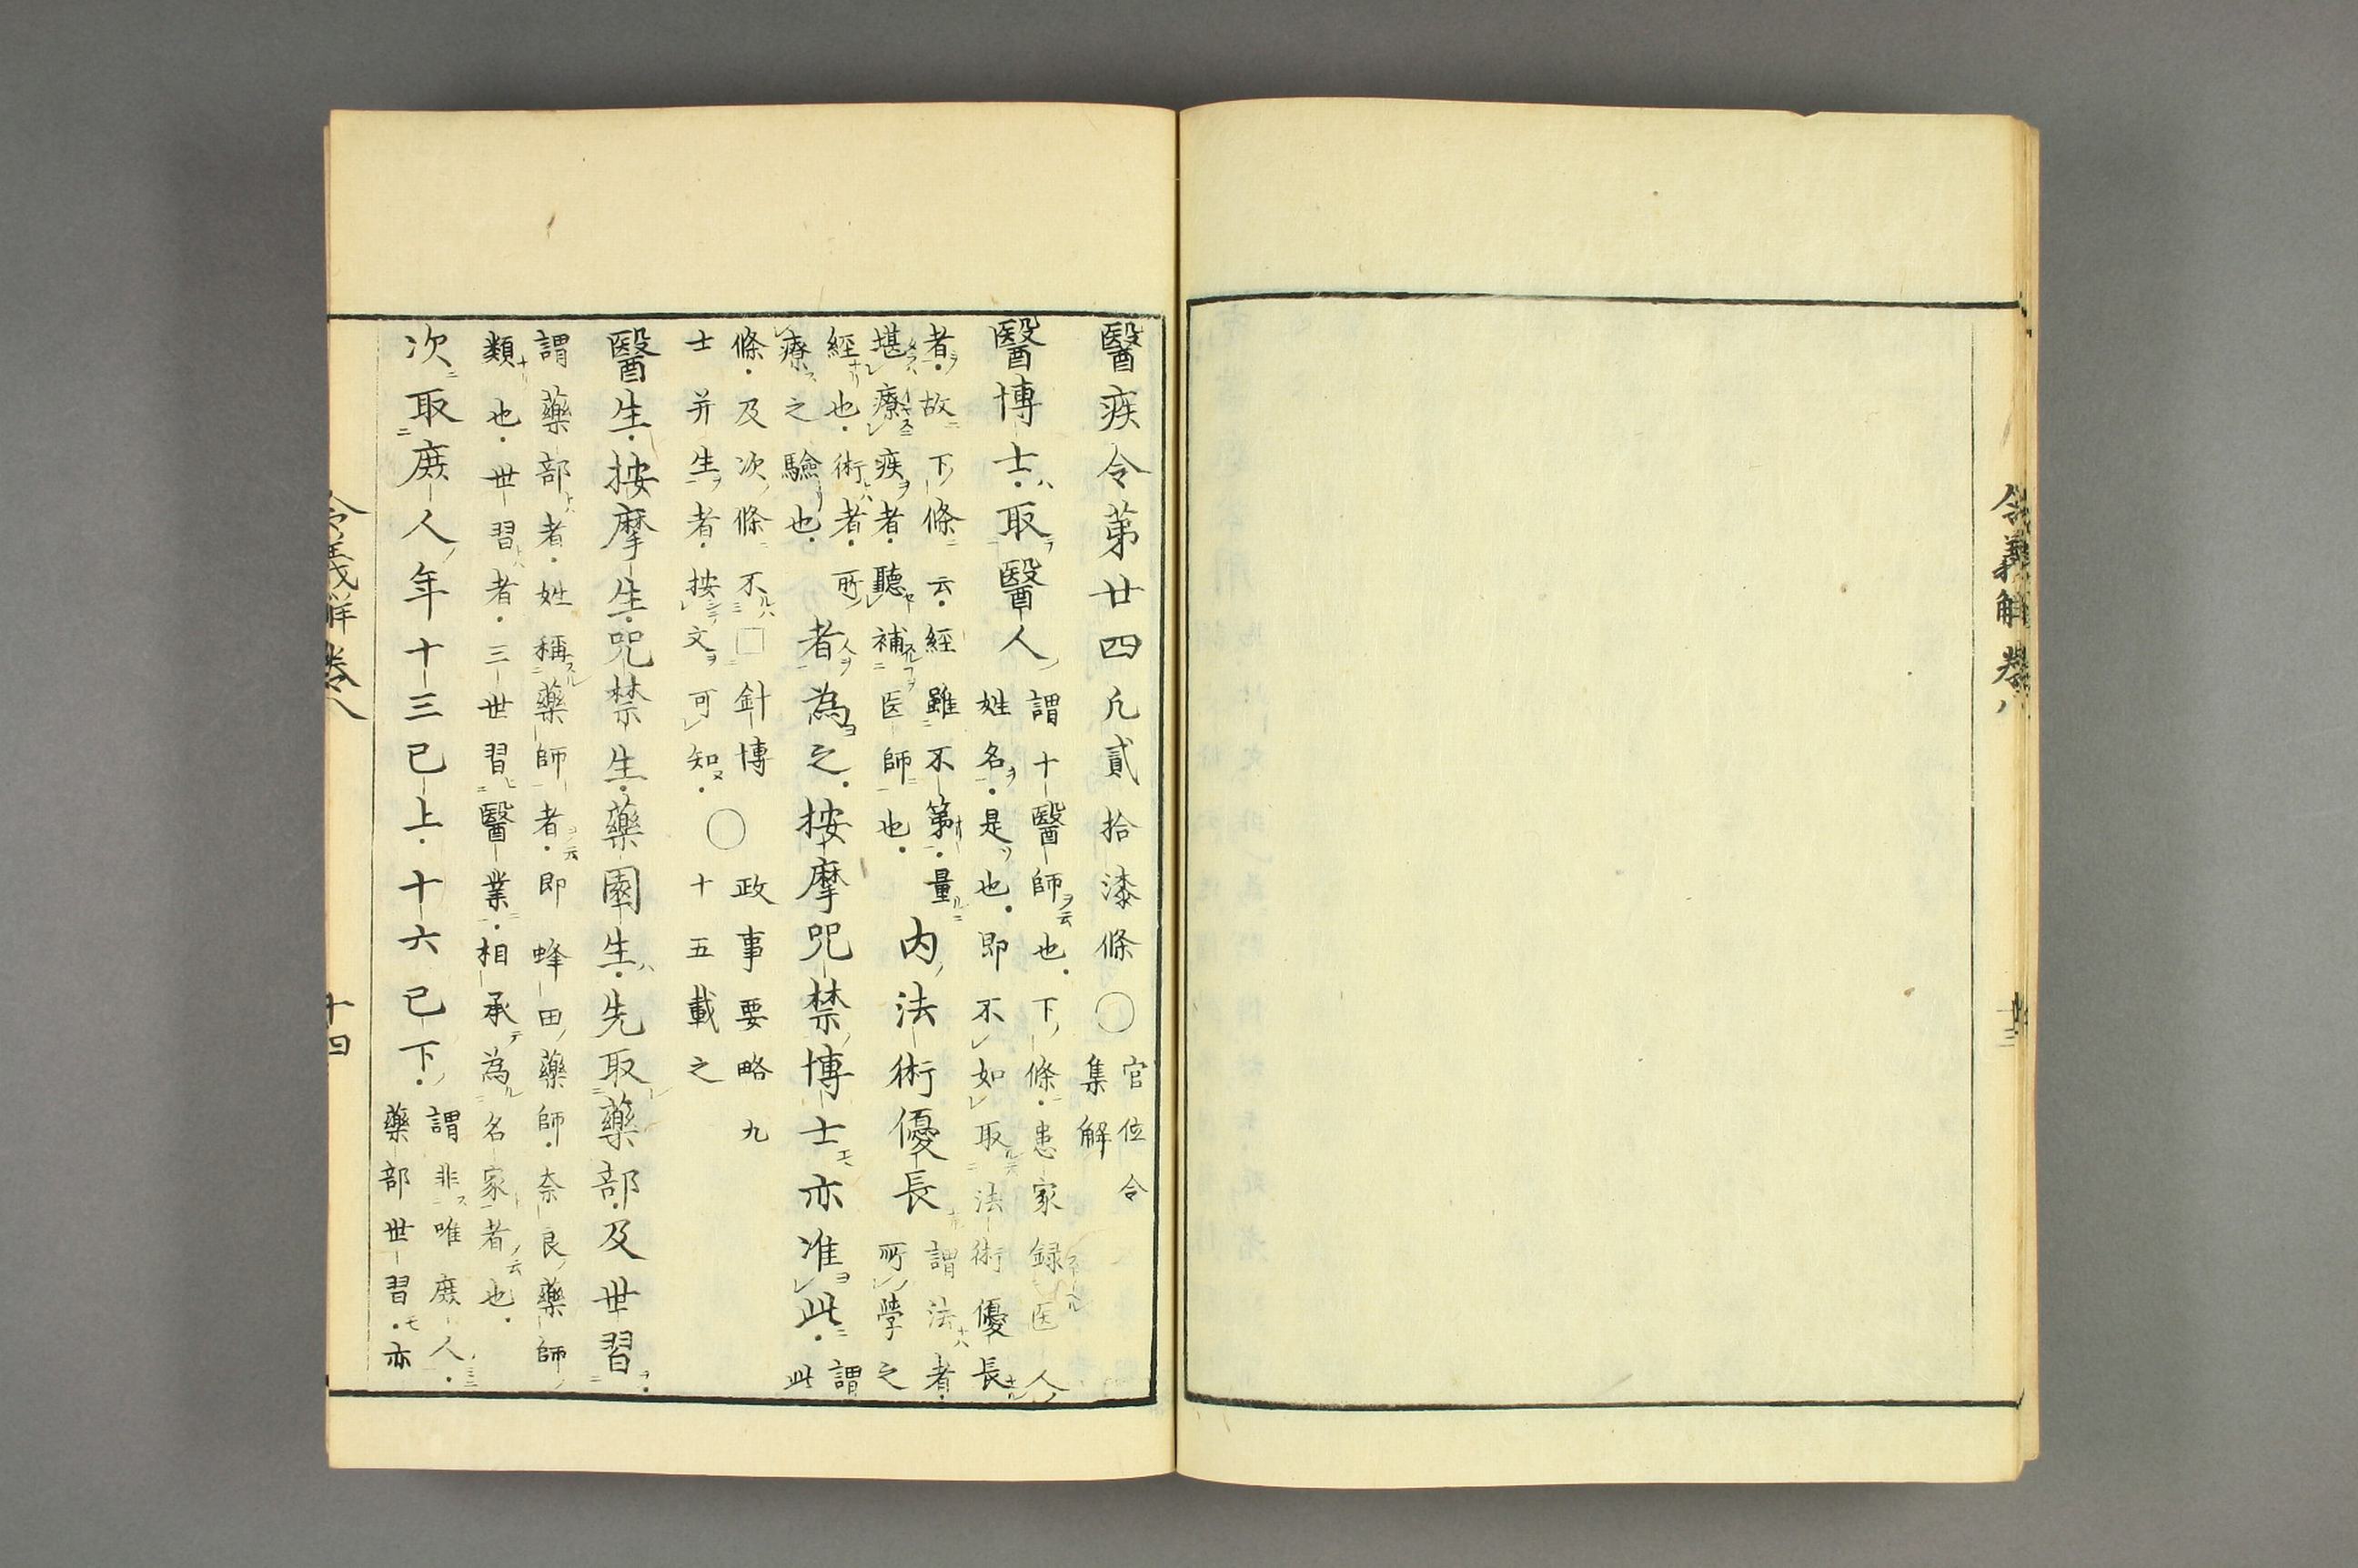 令義解 卷八
醫疾令第廿四凡貳拾漆條○官位令
集解
醫博士取醫人
謂十醫師也下條患家録医人
姓名是也即不如取法術優長
者故下條云經雖不第量
堪療疾者聽補医師也
内法術優長
謂法者
所學之
經也術者所
療之驗也
者為之按摩咒禁博士亦准此
謂
此
條及次條不□針博
士并生者按文可知
○政事要略九
十五載之
醫生按摩生咒禁生藥園生先取藥部及世習
謂藥部者姓稱藥師者即蜂田藥師奈良藥師
類也世習者三世習醫業相承為名家者也
次取庶人年十三已上十六已下
謂非唯庶人
藥部世習亦
令義解卷八 十四